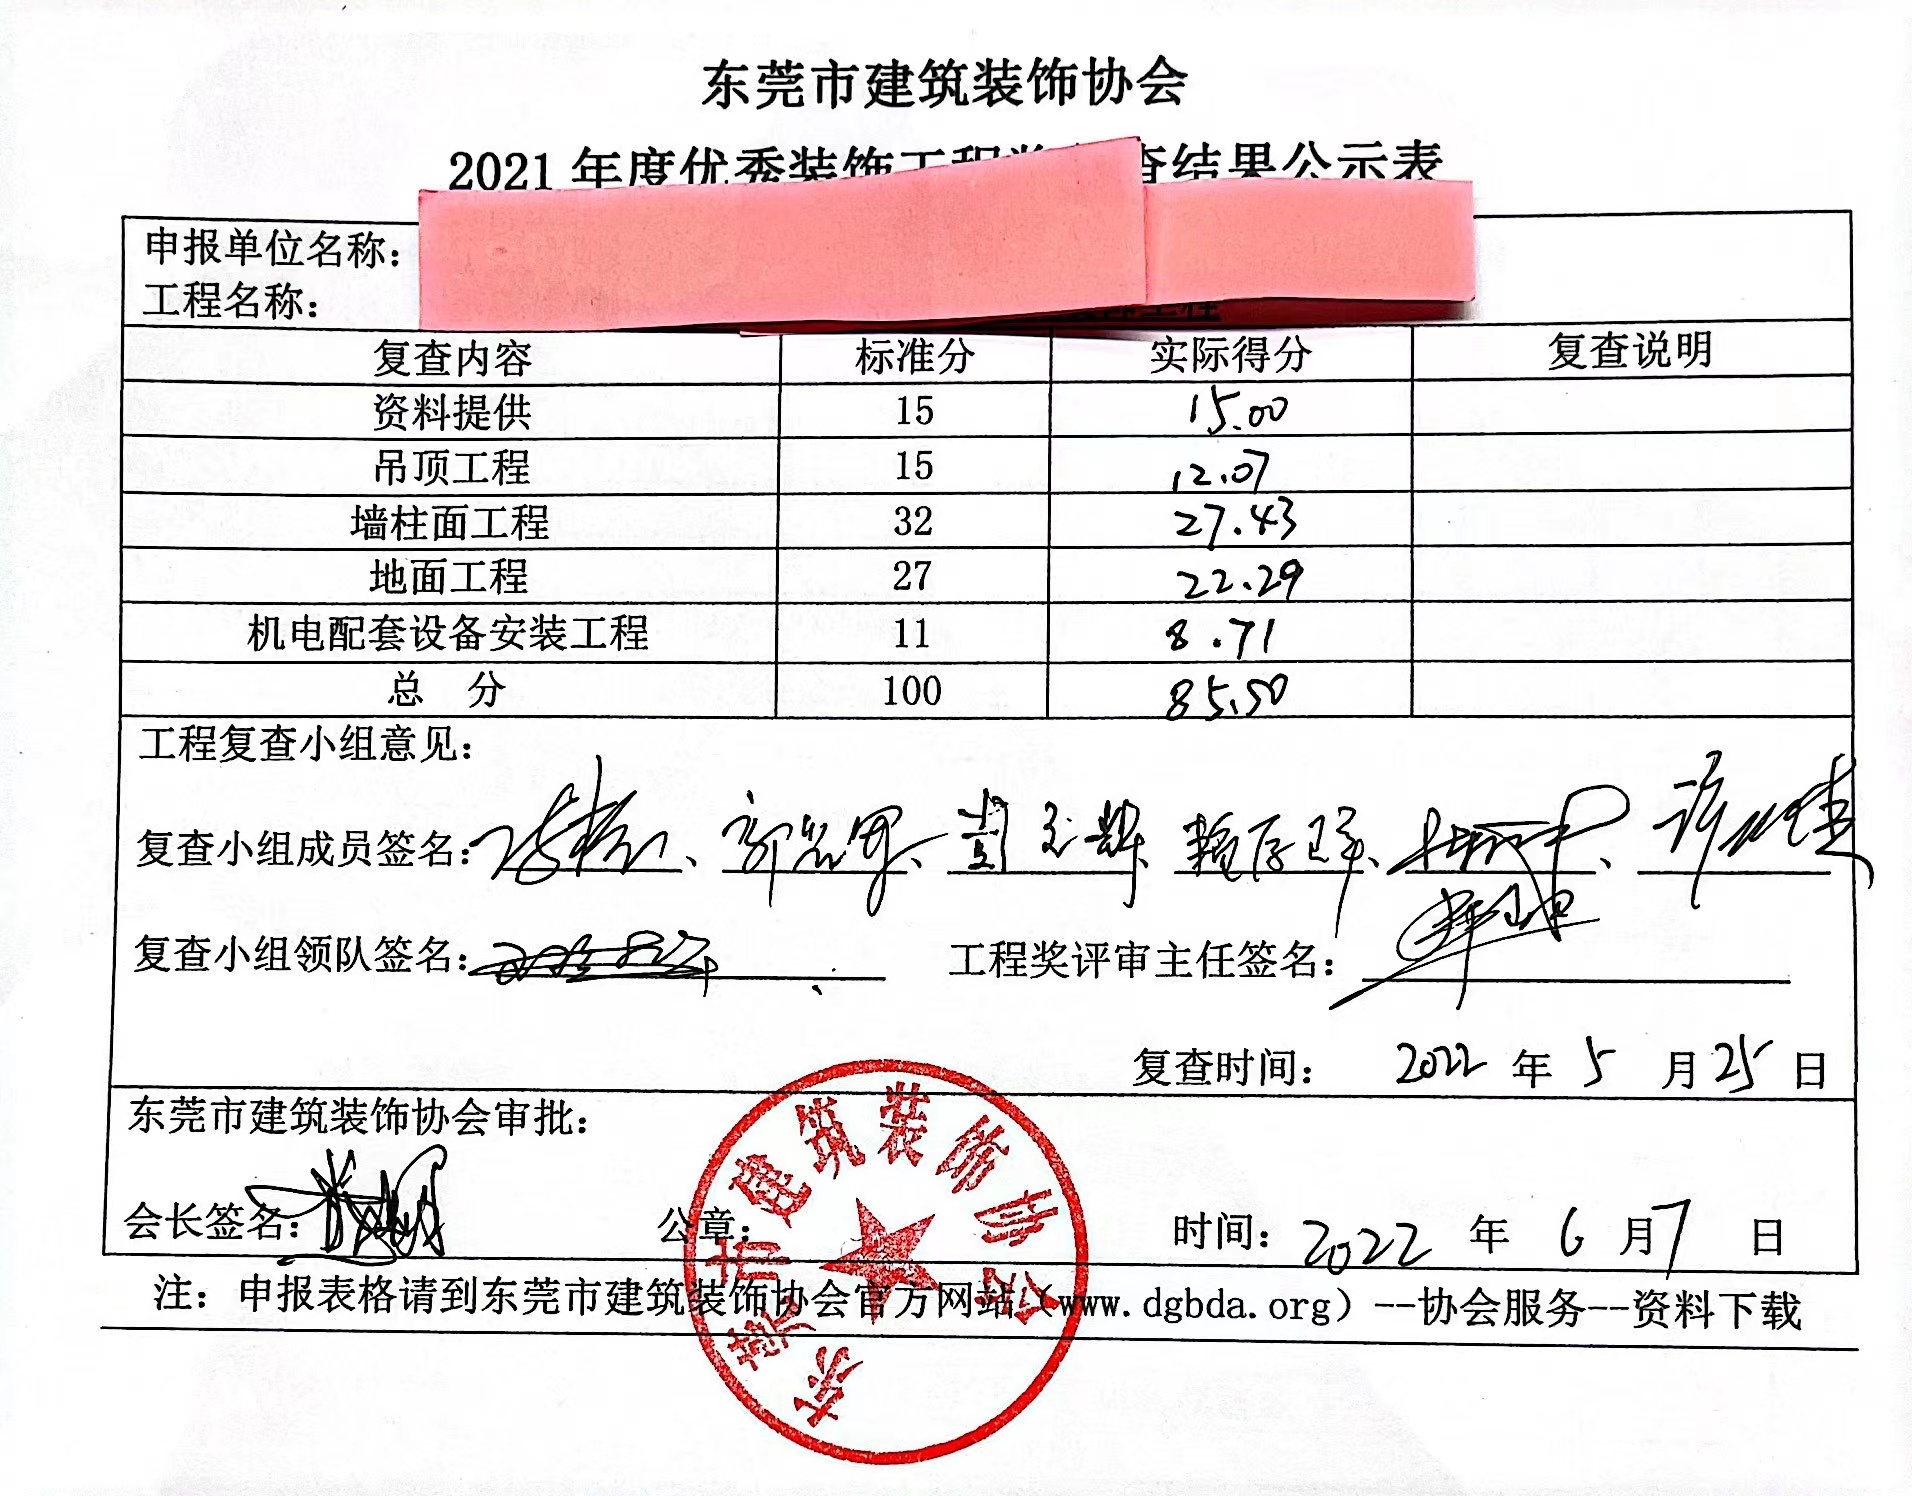 东莞市建筑装饰协会
2021年度优秀装饰工程奖 查结果公示表
申报单位名称：
工程名称：
工程
复查内容 标准分 实际得分 复查说明
资料提供 15 15.00
吊顶工程 15 12.07
墙柱面工程 32 27.43
地面工程 27 22.29
机电配套设备安装工程 11 8.71
总 分 100 85.50
工程复查小组意见：
复查小组成员签名：
复查小组领队签名： 工程奖评审主任签名：
复查时间： 2022 年 5 月 25 日
东莞市建筑装饰协会审批：
会长签名： 公章： 时间：2022 年 6 月 7 日
东莞市建筑装饰协会
注：申报表格请到东莞市建筑装饰协会官方网站（www.dgbda.org）--协会服务--资料下载